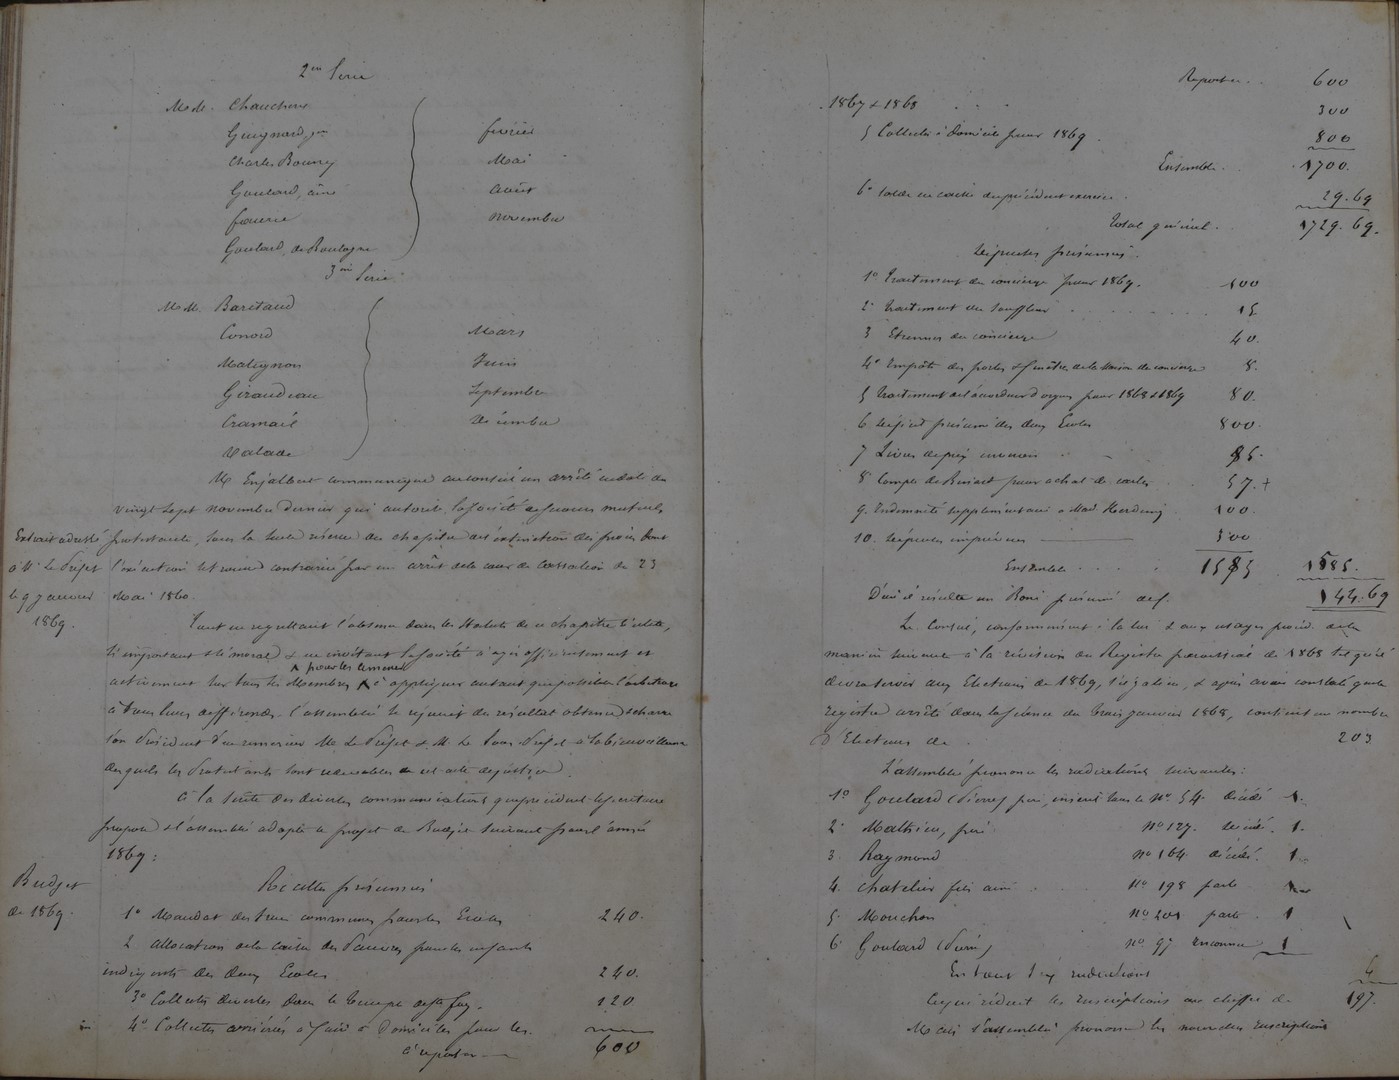 2me Serie
MM. Chauchere
Guignard, jne
Charles Bourry
Goulard, ainé
fourrie
Goulard, de Boulogne
février
Mai
Août
novembre
3me Serie
MM. Baretaud
Conord
Matignon
Giraudeau
Cramail
Valade
Mars
Juin
Septembre
décembre
M. Enjalbert communique au conseil un arrêté en date du
vingt sept novembre dernier qui autorise la société de secours mutuels
protestante, sous la seule réserve du chapitre de l'extinction des procès dont
l'exécution se trouve contrariée par un arrêt de la cour de Cassation du 23
Mai 1860.
Extrait adressé
à M. le Préfet
le 9 janvier
1869.
Tout en regrettant l'absence dans les Statuts de ce chapitre si utile,
si important & si moral & en invitant la société à agir officieusement et
activement sur tous ses Membres pour les amener à appliquer autant que possible l'arbitrage
à tous leurs différends l'assemblée se réjouit du résultat obtenu & charge
son Président d'en remercier M. Le Préfet & M. Le Sous-Préfet à la bienveillance
desquels les Protestants sont redevables de cet acte de justice.
à la suite des diverses communications qui précèdent le secrétaire
propose & l'assemblée adopte le projet de Budjet suivant pour l'année
1869:
Budjet
de 1869.
Recettes présumées
1º Mandat des trois communes pour les Ecoles 240.
2 allocation de la caisse des Pauvres pour les enfants
indigents des deux Ecoles 240.
3º Collectes diverses dans le Temple de Ste foy. 120
4º Collectes arriérées à faire à Domicile pour les
à reporter 600
Reporter 600
1867 & 1868 300
5 Collecte à domicile pour 1869. 800
Ensemble 1700.
6º Solde en caisse du précédent exercice 29.69
Total général 1729.69.
Dépenses présumées.
1º Traitement du concierge pour 1869. 400
2º Traitement du Souffleur 15
3 Etrennes du concierge 40.
4º Impôts des portes & fenêtres de la Maison du concierge 8.
5 Traitement de l'accordeur d'orgues pour 1868 & 1869 80.
6 Déficit présumé des deux Ecoles 800.
7 Livres de prix 85.
8 Compte de pour achat de 57.+
9. Indemnité supplémentaire à Mad. 100.
10. Dépenses imprévues 300
Ensemble 1585 1585.
D'où il résulte un Boni présumé de 144.69
Le Conseil, conformément à la loi & aux usages procède de la
manière suivante à la révision du Registre paroissial de 1868 tel qu'il
devra servir aux Elections de 1869, & après avoir constaté que le
registre arrêté dans la séance du trois janvier 1868, contient un nombre
d'Electeurs de 203
L'assemblée prononce les radiations suivantes:
1º Goulard (Pierre) père, inscrit sous le Nº 54 décédé 1.
2º Mathieu, père nº 127. décédé. 1.
3 Raymond nº 164 décédé. 1
4. Chatelier fils ainé nº 198 parti 1
5. Mouchon nº 201 parti. 1
6 Goulard (Pierre) nº 97 1
En tout six radiations 6
Ce qui réduit les inscriptions au chiffre de 197.
Mais l'assemblée prononce les nouvelles inscriptions